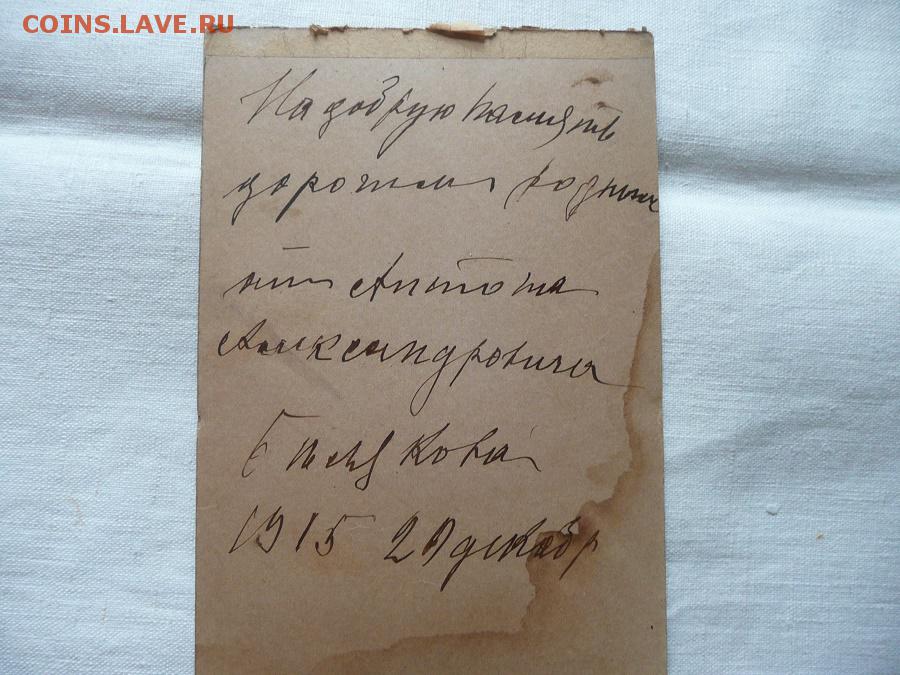 COINS.LAVE.RU
На добрую память
дорогим родным
от Антона
Александровича
1915 29 декабр